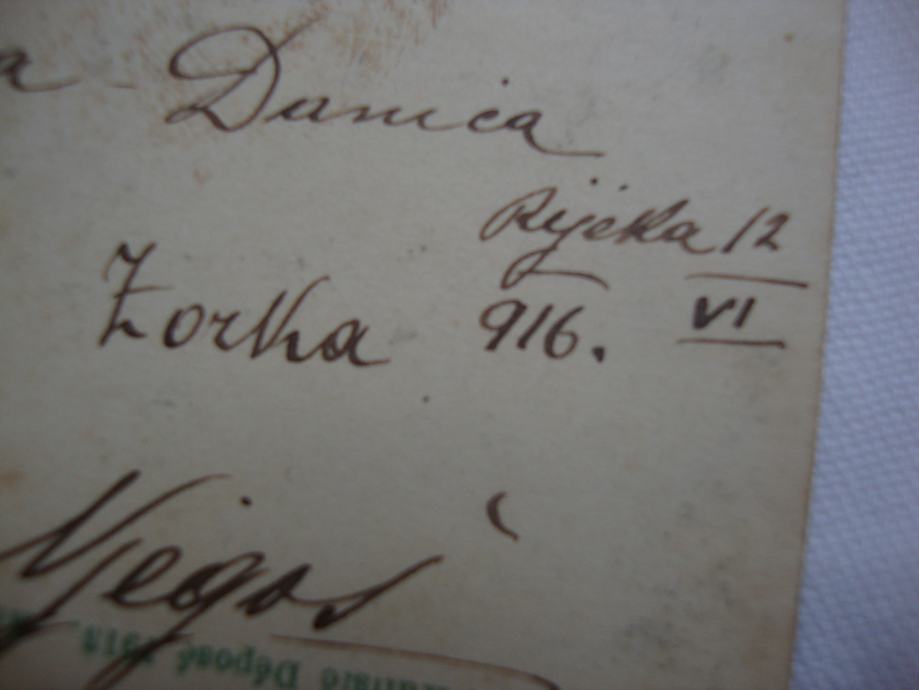 a - Danica
Rijeka 12
VI
916.
Zorka
Njegoš
Déposé 1913